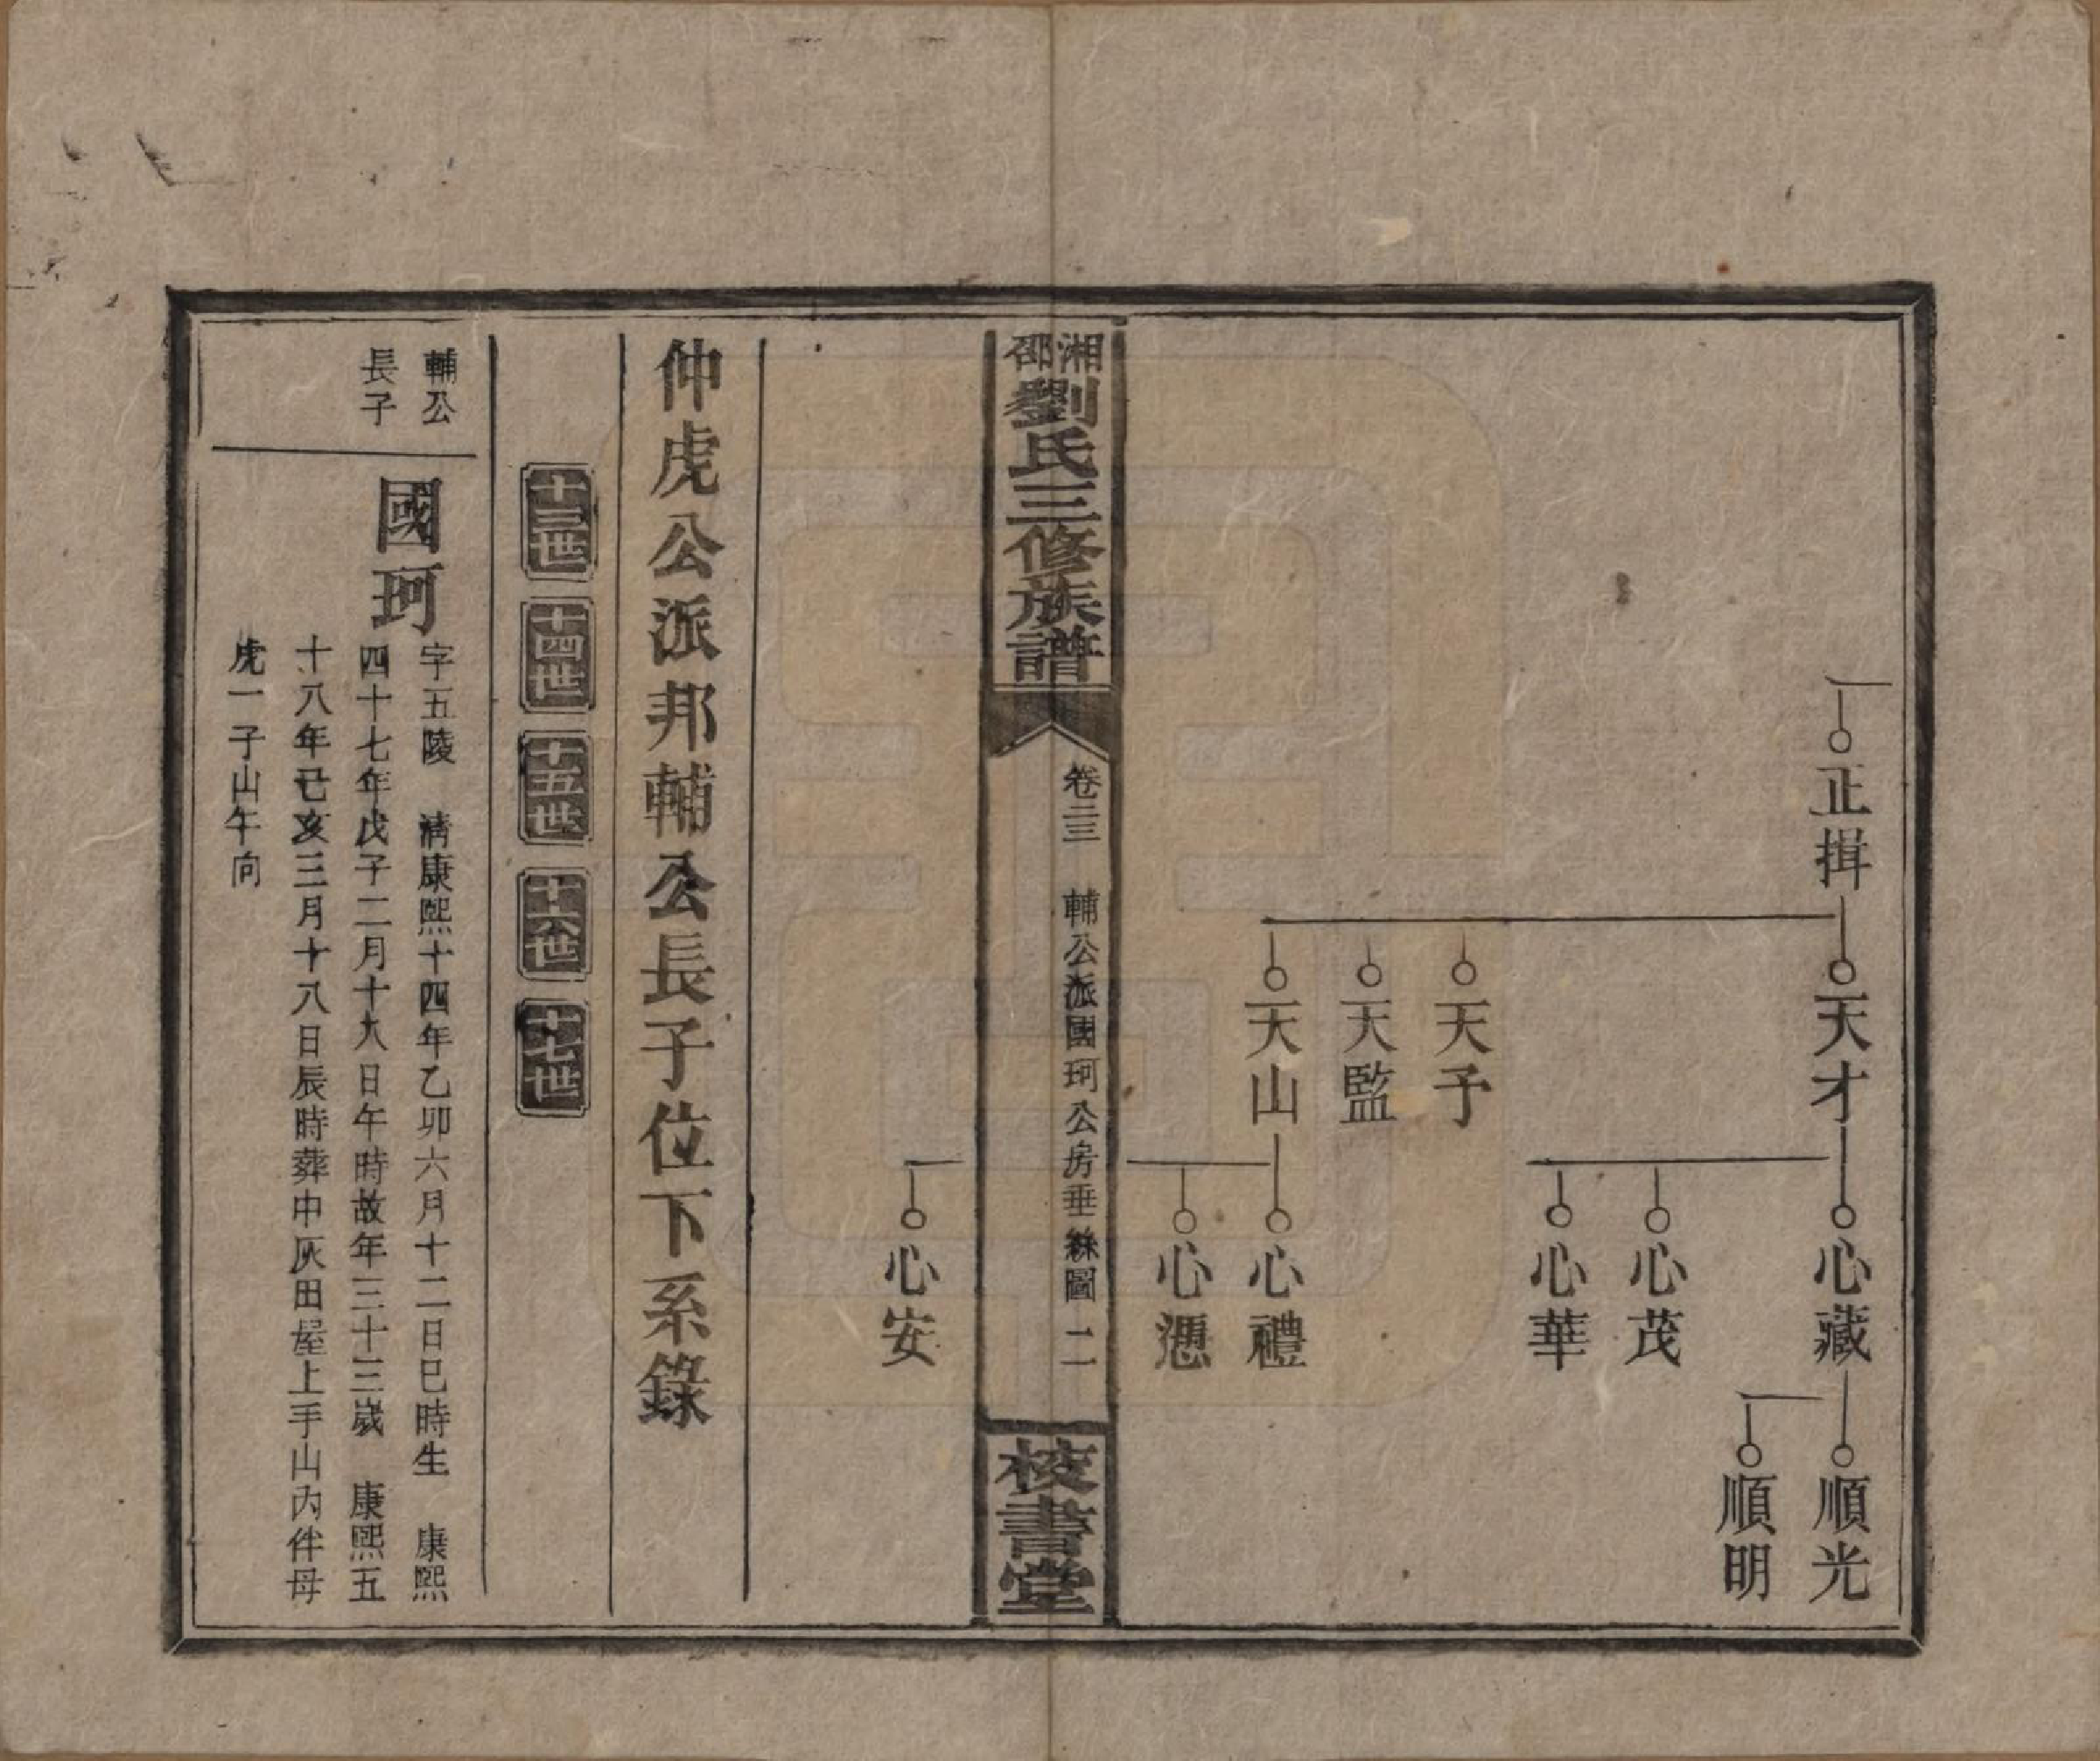 正揖
天才
天予
天監
天山
心藏
心茂
心華
心禮
心慿
心安
順光
順明
湘邵劉氏三修族譜
卷二三
輔公派國珂公房垂絲圖
二
校書堂
仲虎公派邦輔公長子位下系錄
十三世
十四世
十五世
十六世
十七世
輔公
長子
國珂
字五陵 清康熙十四年乙卯六月十二日巳時生 康熙
四十七年戊子二月十九日午時故年三十三歲 康熙五
十八年己亥三月十八日辰時葬中灰田屋上手山內伴母
虎一子山午向